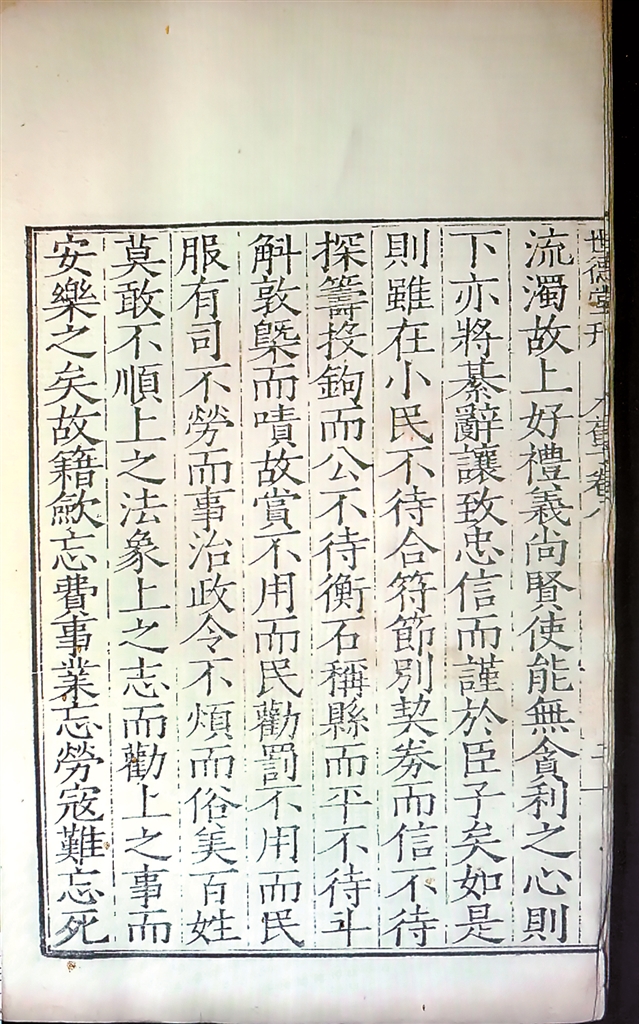 世德堂刊
流濁故上好禮義尚賢使能無貪利之心則
下亦將綦辭讓致忠信而謹於臣子矣如是
則雖在小民不待合符節別契劵而信不待
探籌投鉤而公不待衡石稱縣而平不待斗
斛敦槩而嘖故賞不用而民勸罰不用而民
服有司不勞而事治政令不煩而俗美百姓
莫敢不順上之法象上之志而勸上之事而
安樂之矣故籍歛忘費事業忘勞寇難忘死